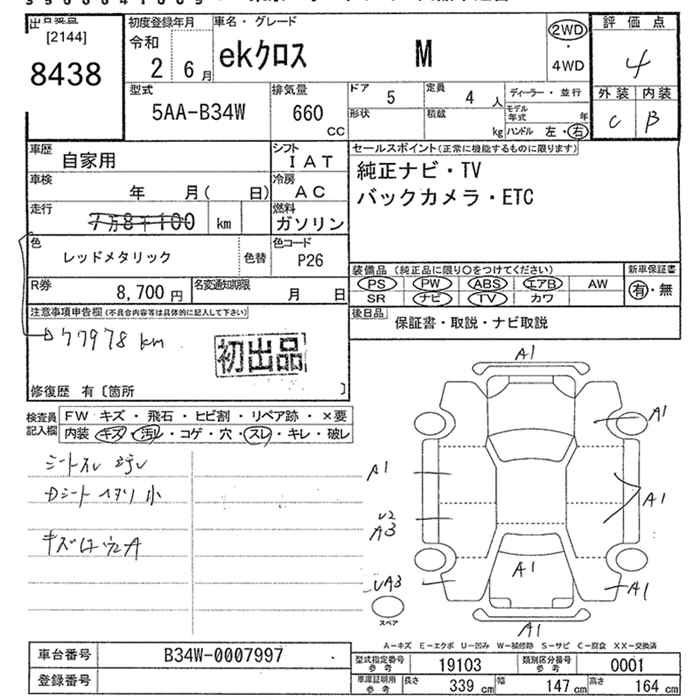 出品票
[2144]
8438
初度登録年月
令和
2 6月
車名・グレード
ekクロス M
2WD
・
4WD
評価点
4
外装 内装
C B
型式
5AA-B34W
排気量
660
CC
ドア 5
定員 4 人
形状
積載 kg
ディーラー・並行
モデル年式 年
ハンドル 左・右
車歴 自家用
シフト IAT
車検 年 月( 日)
冷房 AC
走行 7万8千100 km
燃料 ガソリン
色 レッドメタリック
色替
色コード P26
R券 8,700円
名変通知期限 月 日
セールスポイント(正常に機能するものに限ります)
純正ナビ・TV
バックカメラ・ETC
装備品 (純正品に限り○をつけてください)
PS PW ABS エアB AW
SR ナビ TV カワ
新車保証書
有・無
後日品 保証書・取説・ナビ取説
注意事項申告欄(不具合内容等は具体的に記入して下さい)
77978 km
初出品
修復歴 有〔箇所 〕
検査員記入欄
FW キズ・飛石・ヒビ割・リペア跡・×要
内装 キズ・汚レ・コゲ・穴・スレ・キレ・破レ
シートスレ 汚レ
Dシート ヘタリ 小
A1
A1
A1
A1
U2
A3
A1
UA3
A1
A1
スペア
A-キズ E-エクボ U-凹み W-補修跡 S-サビ C-腐食 XX-交換済
車台番号 B34W-0007997
登録番号
型式指定番号参考 19103
類別区分番号参考 0001
車庫証明用参考 長さ 339 cm 幅 147 cm 高さ 164 cm